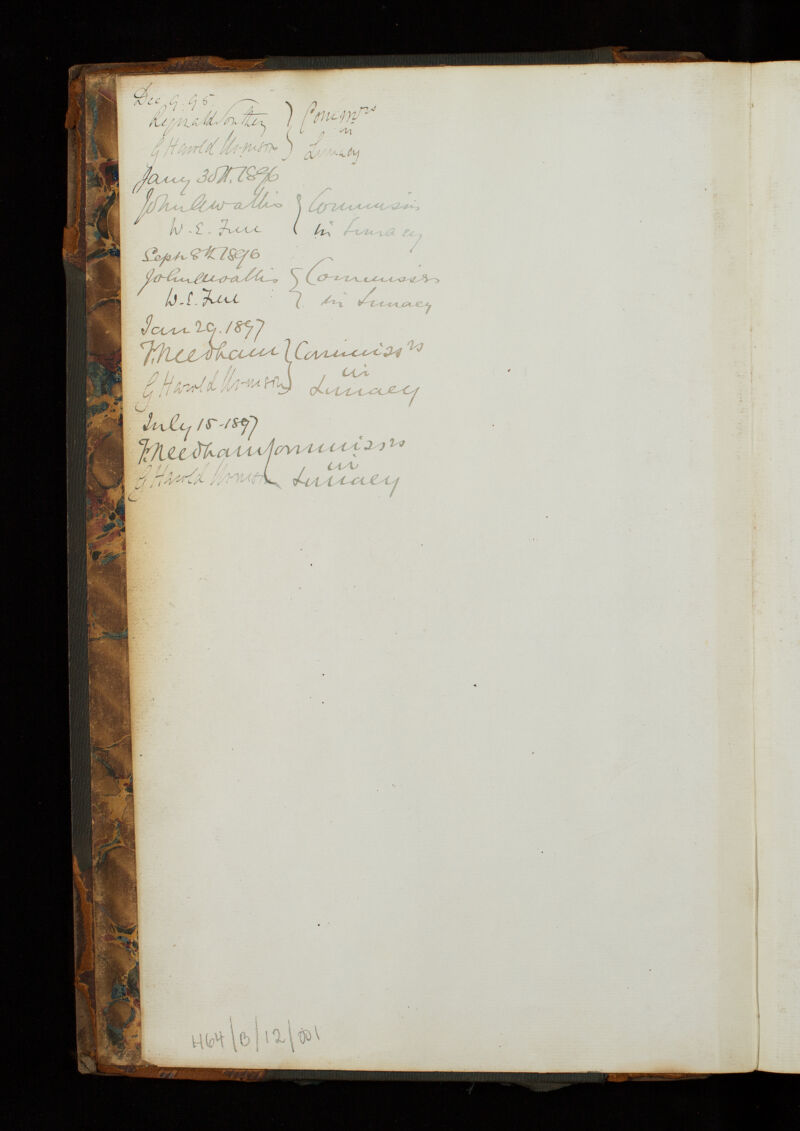 Dec 9. 95
Reginald Southey } Commrs
G Harold Urmson } in Lunacy
Jany 30th. 1896
John A Wallis } Commissrs
W. E. Frere { in Lunacy
Sept 8th 1896
John A Wallis { Commissrs
W. E. Frere } in Lunacy
Jan 29. 1897
F. Needham } Commissrs
G Harold Urmson } in Lunacy
July 15-1897
F. Needham Commissrs
G Harold Urmson in Lunacy
H64/B/12/001